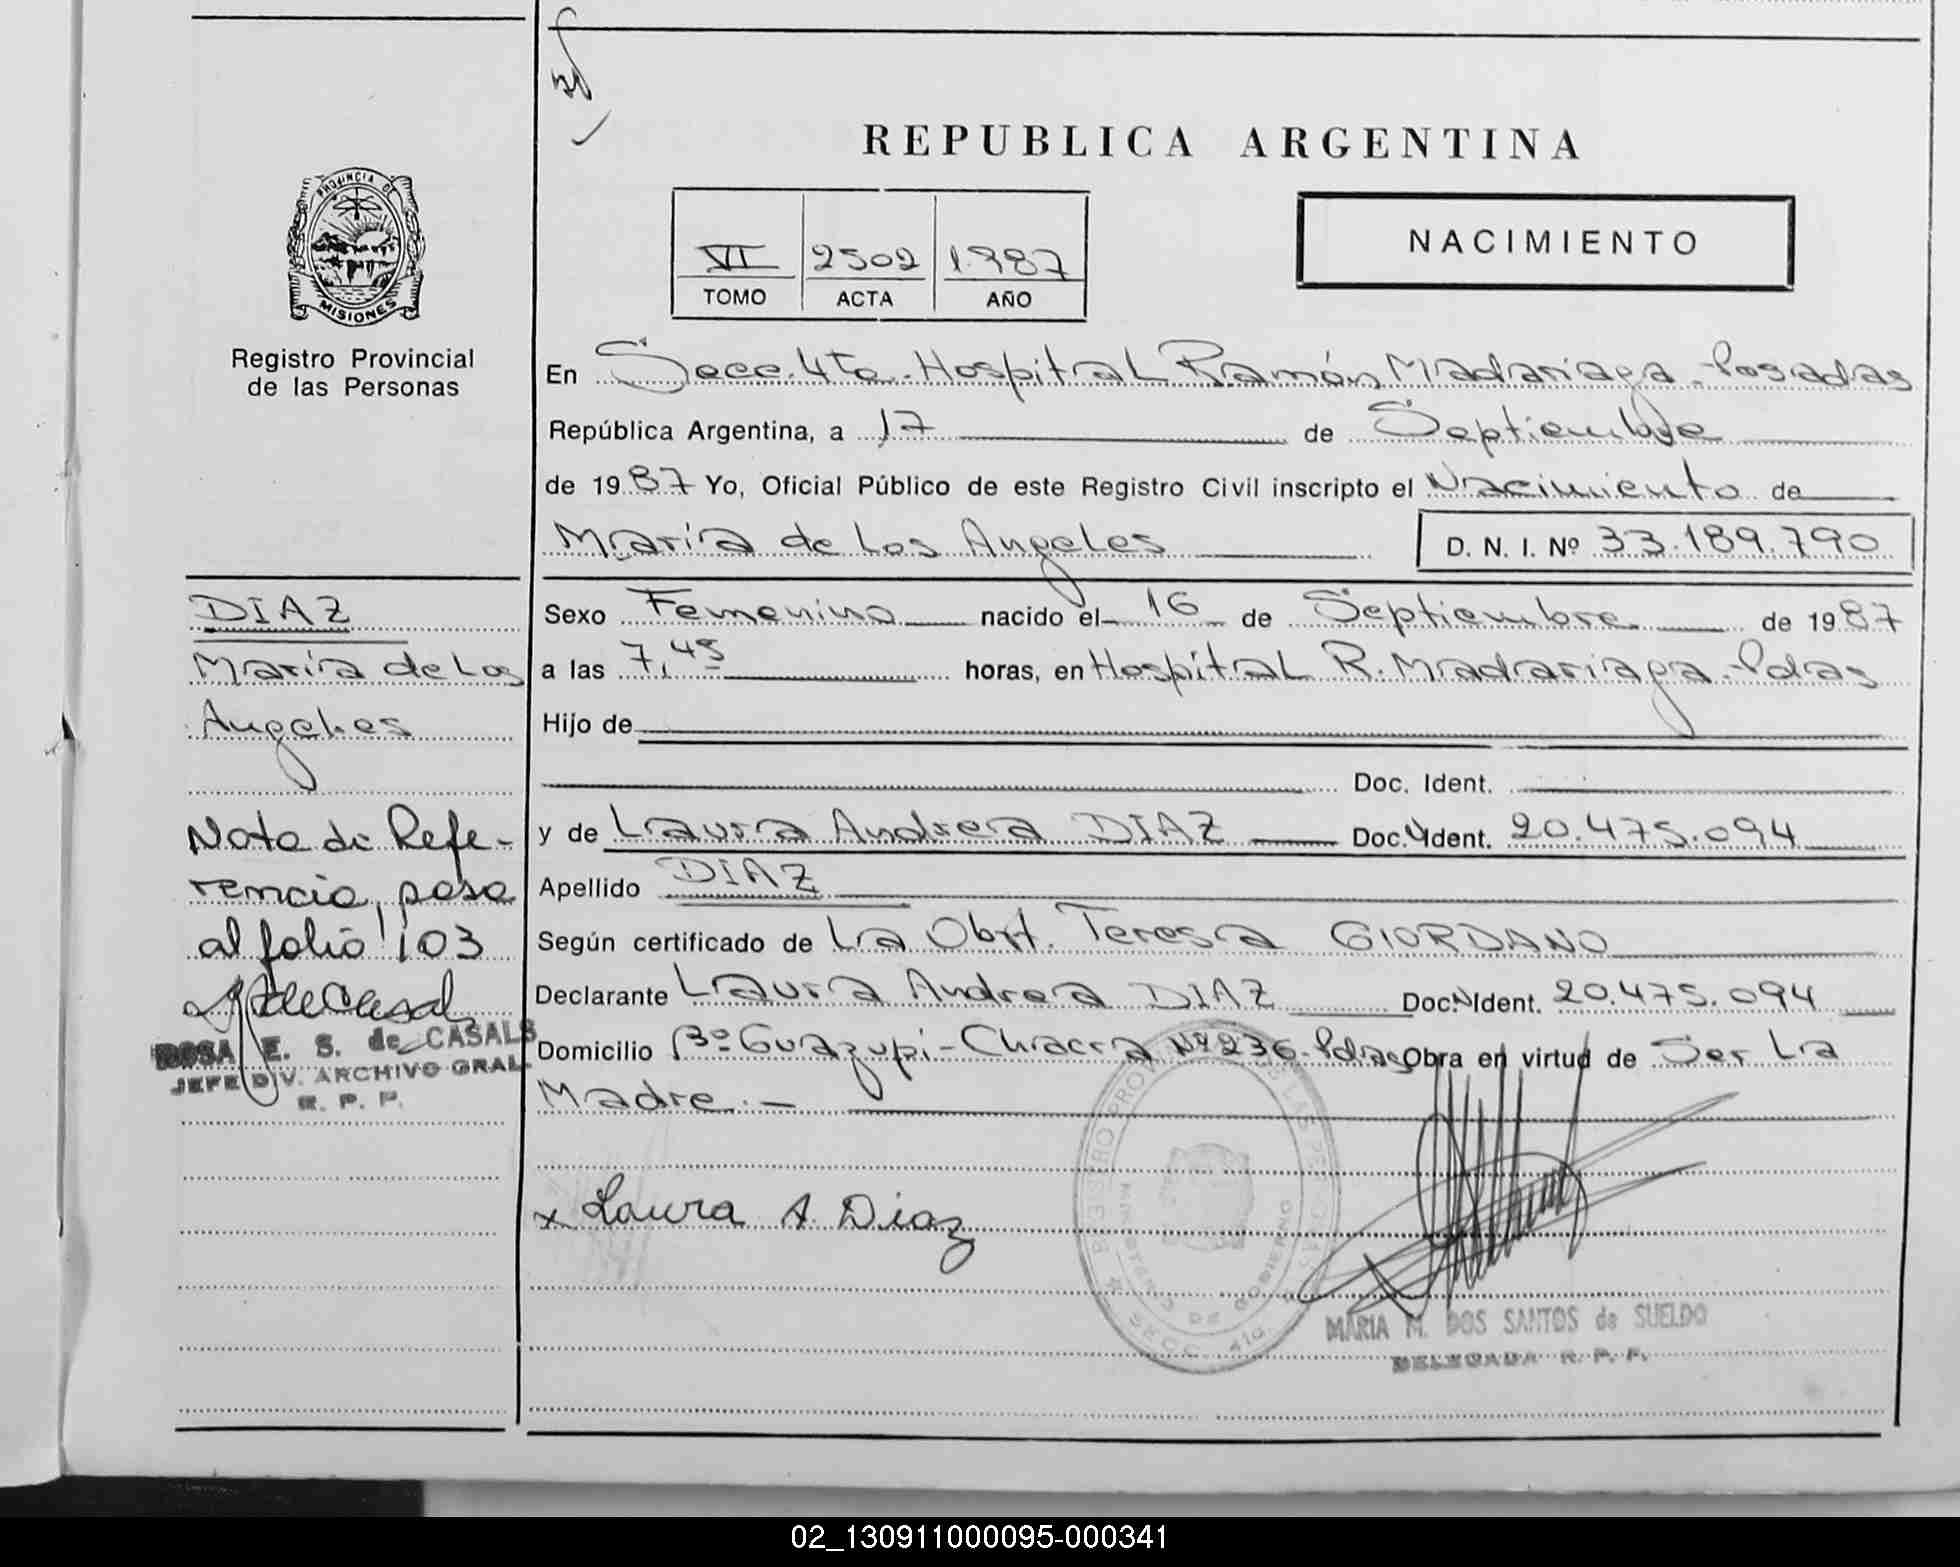 REPUBLICA ARGENTINA
PROVINCIA DE
MISIONES
Registro Provincial
de las Personas
VI 2502 1.987
TOMO ACTA AÑO
NACIMIENTO
En Secc. 4ta. Hospital Ramón Madariaga - Posadas
República Argentina, a 17 de Septiembre
de 1987 Yo, Oficial Público de este Registro Civil inscripto el Nacimiento de
María de Los Angeles D. N. I. Nº 33.189.790
DIAZ
María de Los
Angeles
Nota de Refe-
rencia, pasa
al folio 103
ROSA E. S. de CASALS
JEFE DIV. ARCHIVO GRAL.
R. P. P.
Sexo Femenino nacido el 16 de Septiembre de 1987
a las 7,45 horas, en Hospital R. Madariaga - Pdas
Hijo de
Doc. Ident.
y de Laura Andrea DIAZ Doc. Ident. 20.475.094
Apellido DIAZ
Según certificado de La Obst. Teresa GIORDANO
Declarante Laura Andrea DIAZ Doc. Ident. 20.475.094
Domicilio Bº Guazupi - Chacra Nº 236 - Pdas Obra en virtud de Ser La
Madre.-
x Laura A. Diaz
MARIA M. DOS SANTOS de SUELDO
DELEGADA R. P. P.
02_130911000095-000341